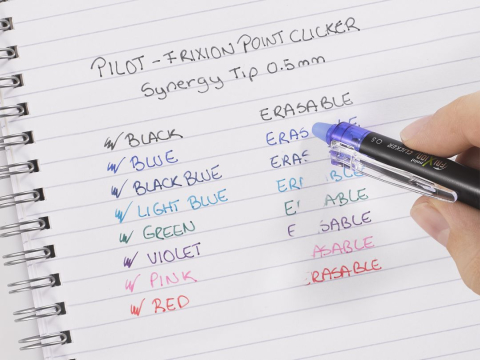 PILOT - FRIXION POINT CLICKER
Synergy Tip 0.5mm
ERASABLE
BLACK ERAS LE
BLUE ERAS
BLACK BLUE ERI BLE
LIGHT BLUE E ABLE
GREEN E SABLE
VIOLET ASABLE
PINK RASABLE
RED
FRIXION CLICKER 0.5